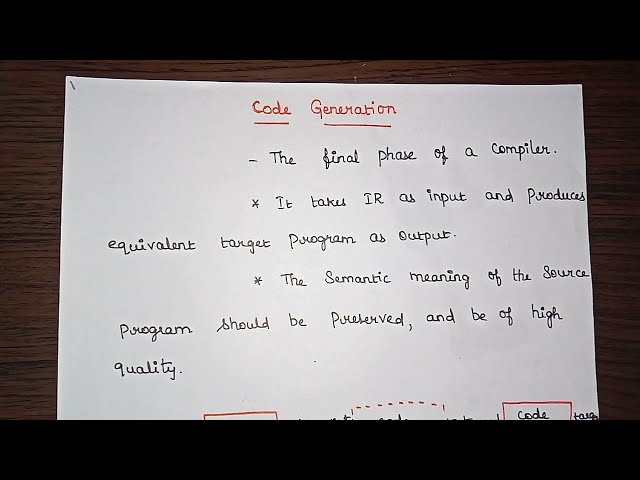 Code Generation
- The final phase of a compiler.
* It takes IR as input and Produces
equivalent target Program as output.
* The Semantic meaning of the Source
Program should be Preserved, and be of high
quality.
code